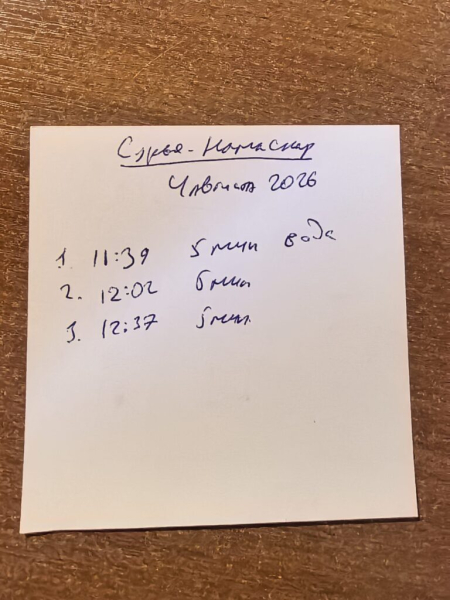 Сурья-Намаскар
4 августа 2026
1. 11:39 5 мин вода
2. 12:02 6 мин
3. 12:37 5 мин.